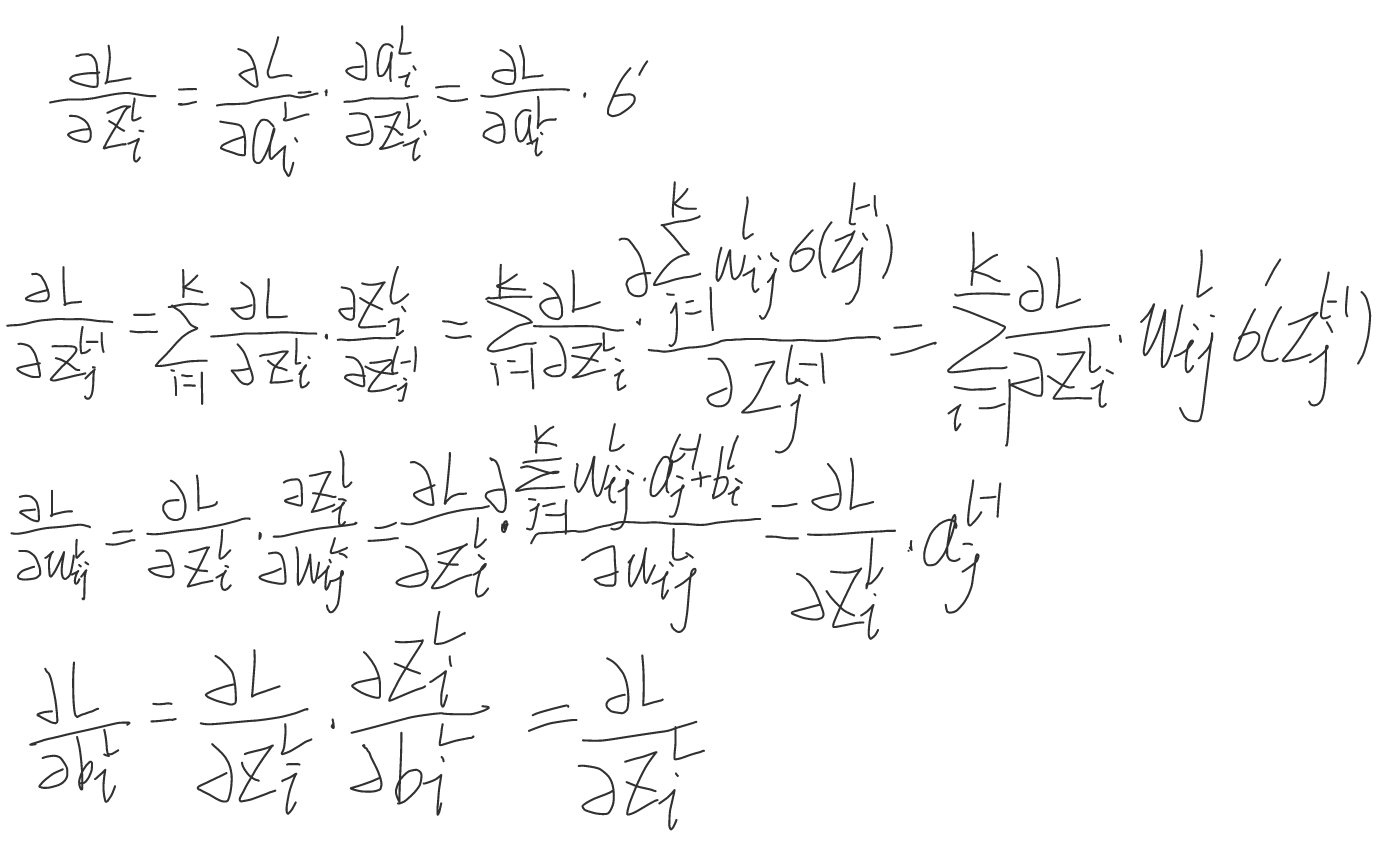 ∂L/∂z_i^L = ∂L/∂a_i^L · ∂a_i^L/∂z_i^L = ∂L/∂a_i^L · σ′
∂L/∂z_j^{l-1} = ∑_{i=1}^{K} ∂L/∂z_i^l · ∂z_i^l/∂z_j^{l-1} = ∑_{i=1}^{K} ∂L/∂z_i^l · ∂∑_{j=1}^{K} w_{ij}^l σ(z_j^{l-1})/∂z_j^{l-1} = ∑_{i=1}^{K} ∂L/∂z_i^l · w_{ij}^l σ′(z_j^{l-1})
∂L/∂w_{ij}^L = ∂L/∂z_i^L · ∂z_i^L/∂w_{ij}^L = ∂L/∂z_i^L · ∂∑_{j=1}^{K} w_{ij}^L · a_j^{l-1} + b_i^l/∂w_{ij}^L = ∂L/∂z_i^L · a_j^{l-1}
∂L/∂b_i^L = ∂L/∂z_i^L · ∂z_i^L/∂b_i^L = ∂L/∂z_i^L